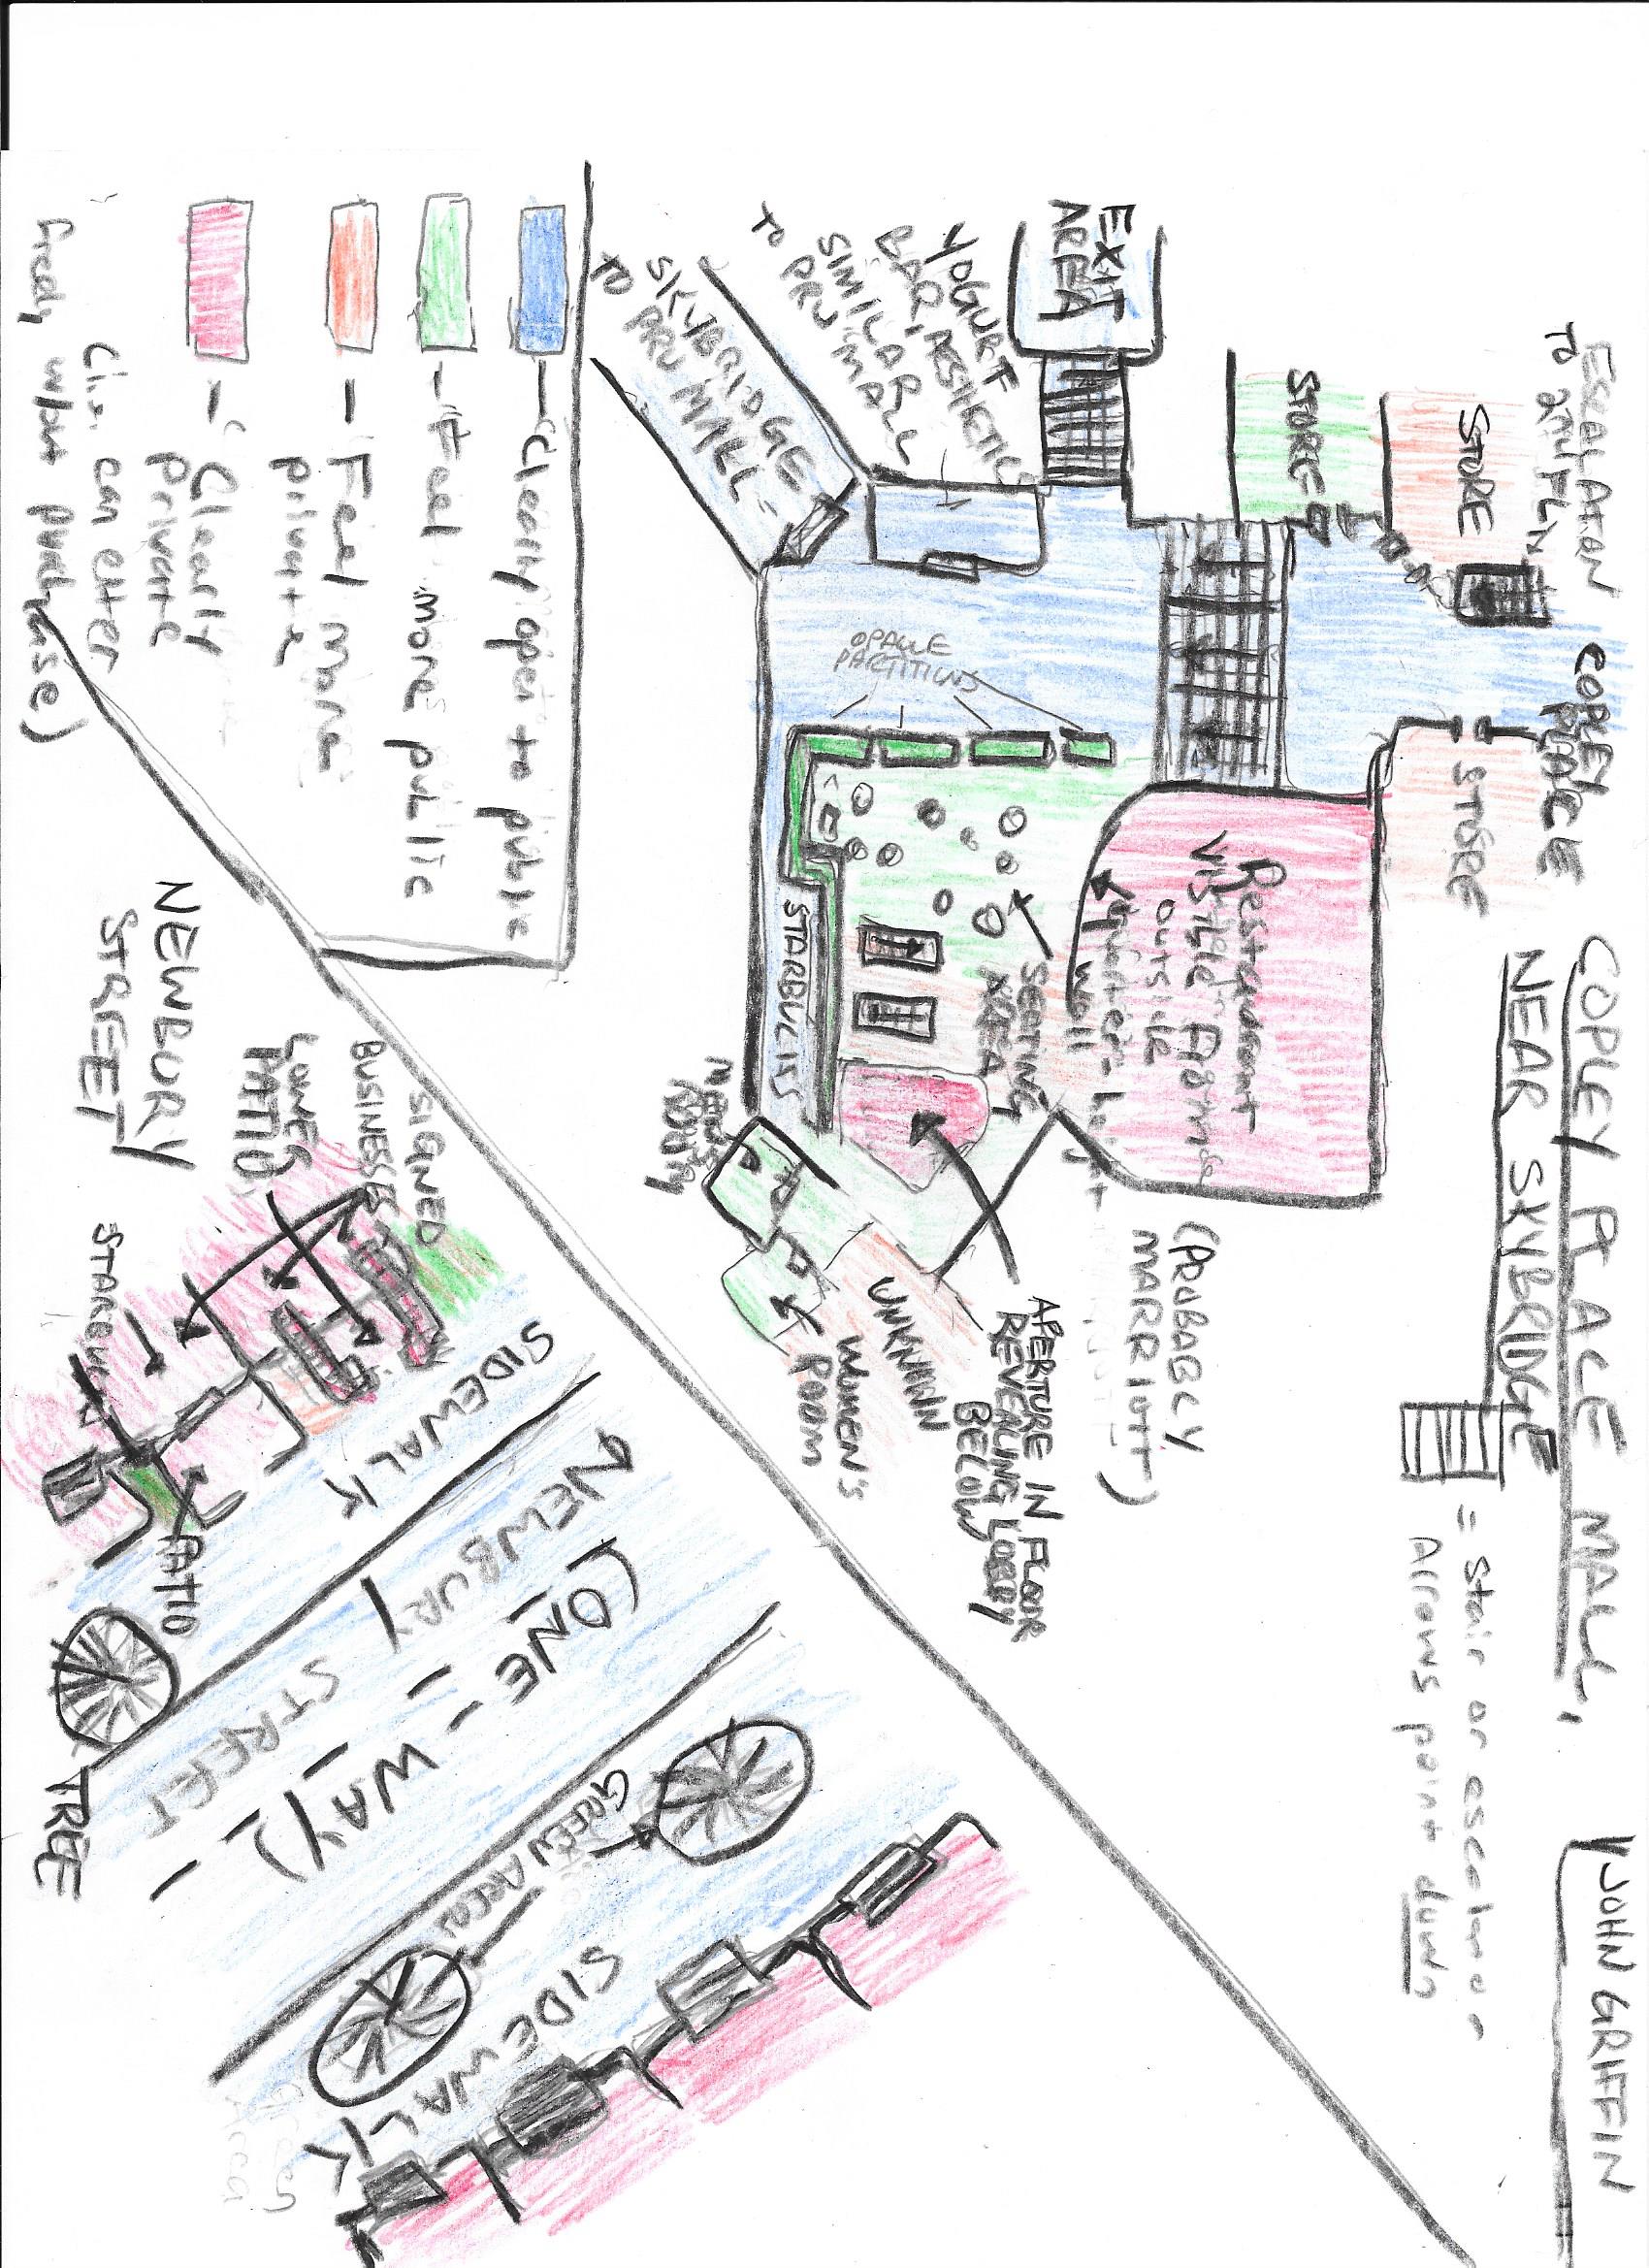 JOHN GRIFFIN
COPLEY PLACE MALL,
NEAR SKYBRIDGE
= Stair or escalator -
Arrows point down
ESCALATOR
TO 2ND FLR
COPLEY
PLACE
STORE
STORE
STORE
EXIT
AREA
YOGURT
BAR, AESTHETIC
SIMILAR
TO PRU MALL
SKYBRIDGE
TO PRU MALL
OPAQUE
PARTITIONS
Restaurant
Visible From
outside
Quarter-height
wall
(PROBABLY
MARRIOTT)
SEATING
AREA
STARBUCKS
APERTURE IN FLOOR
REVEALING LOBBY
BELOW
UNKNOWN
MEN'S
ROOM
WOMEN'S
ROOM
— Clearly open to public
— Feel more public
— Feel more
private
— Clearly
private
can enter
freely w/out purchase)
NEWBURY
STREET
SIGNED
BUSINESSES
LOWER
PATIO
PATIO
SIDEWALK
NEWBURY STREET -
(ONE - WAY)
TREE
GREEN AREAS
SIDEWALK